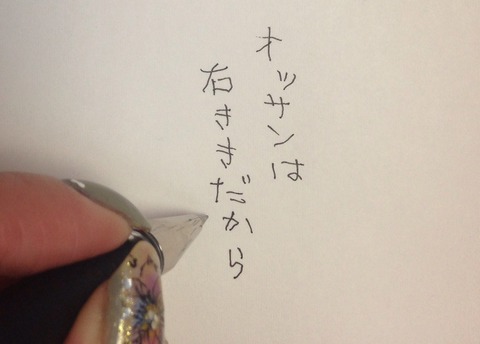 オッサンは
右ききだから